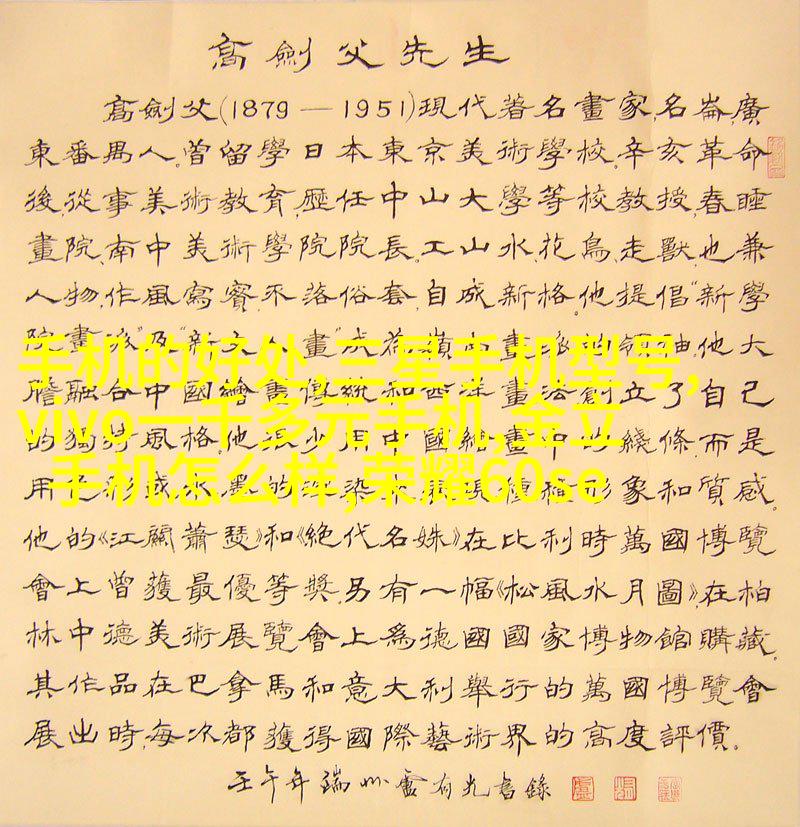 高劍父先生
高劍父(1879—1951)現代著名畫家,名崙,廣
東番禺人。曾留學日本東京美術學校。辛亥革命
後,從事美術教育,歷任中山大學等校教授,春睡
畫院、南中美術學院院長。工山水、花鳥、走獸,也兼
人物,作風寫實,不落俗套,自成新格。他提倡“新學
院畫派”及“新文人畫”成為嶺南畫派的領袖。他大
膽融合中國繪畫傳統和西洋畫法創立了自己
的獨特風格。他很少用中國繪畫中的綫條,而是
用色彩或水墨的渲染來表現體積形象和質感。
他的《江關蕭瑟》和《絕代名姝》在比利時萬國博覽
會上曾獲最優等獎。另有一幅《松風水月圖》,在柏
林中德美術展覽會上為德國國家博物館購藏。
其作品在巴拿馬和意大利舉行的萬國博覽會
展出時,每次都獲得國際藝術界的高度評價。
壬午年瑞州盧有光書錄
手机的好处,三星手机型号,
vivo一千多元手机,金立
手机怎么样,荣耀60se